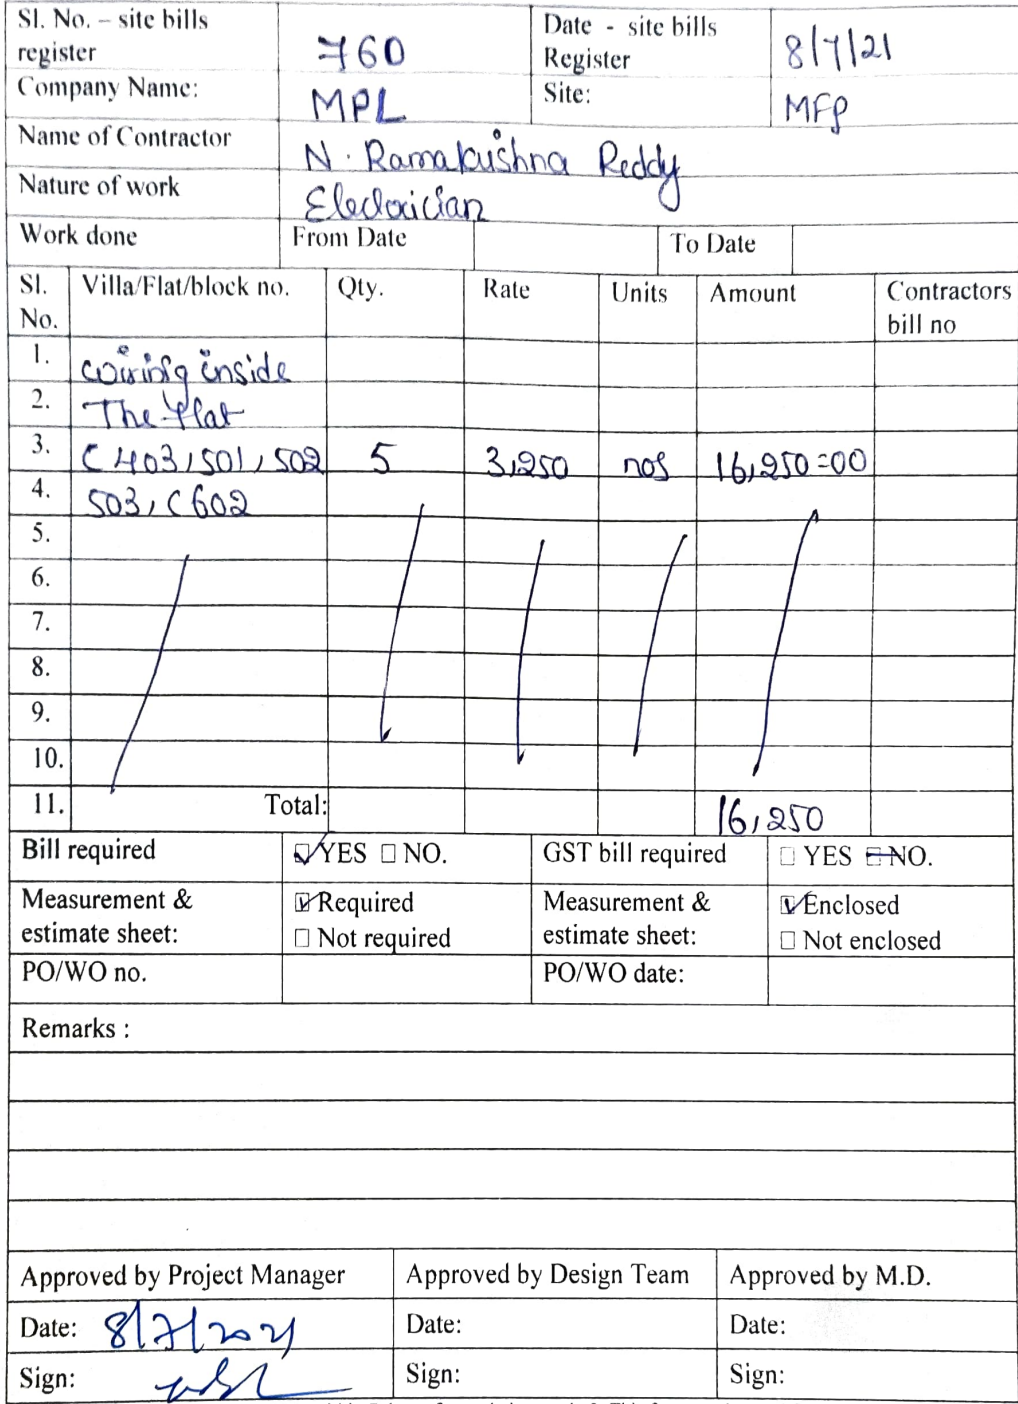 Sl. No. – site bills register 760 Date - site bills Register 8/7/21
Company Name: MPL Site: MFP
Name of Contractor N. Ramakrishna Reddy
Nature of work Electrician
Work done From Date To Date
Sl. No. Villa/Flat/block no. Qty. Rate Units Amount Contractors bill no
1. wiring inside
2. The flat
3. C 403, 501, 502 5 3,250 nos 16,250=00
4. 503, C 602
5.
6.
7.
8.
9.
10.
11. Total: 16,250
Bill required YES NO. GST bill required YES NO.
Measurement & estimate sheet: Required Not required Measurement & estimate sheet: Enclosed Not enclosed
PO/WO no. PO/WO date:
Remarks :
Approved by Project Manager Approved by Design Team Approved by M.D.
Date: 8/7/2021 Date: Date:
Sign: Sign: Sign: